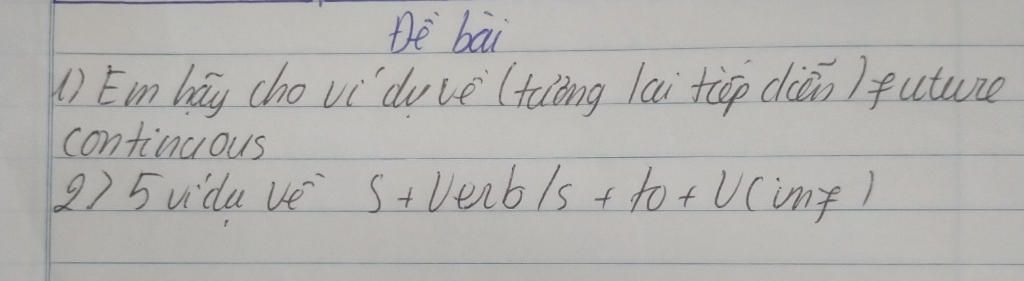 Đề bài
1) Em hãy cho ví dụ về (tương lai tiếp diễn) future
continuous
2) 5 ví dụ về S + Verb/s + to + V(inf)